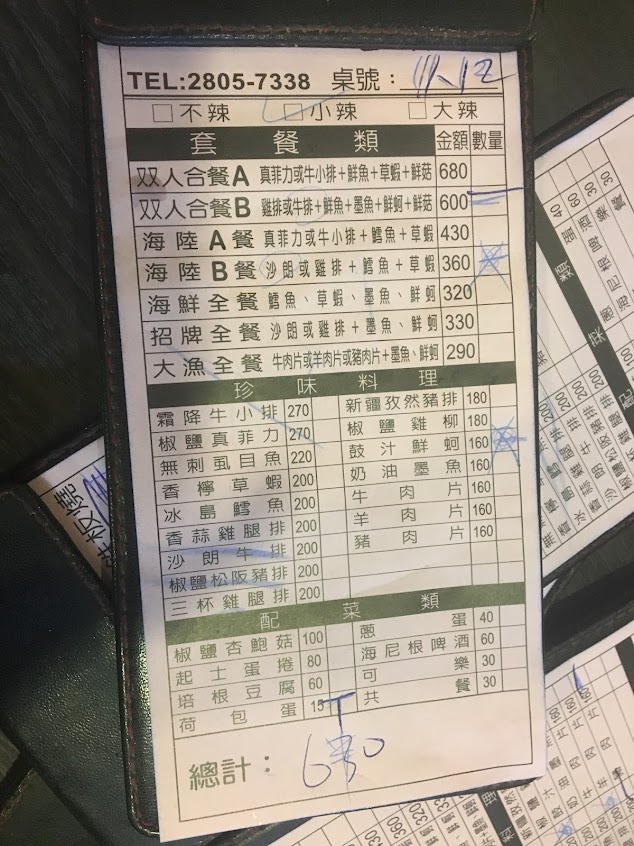 TEL:2805-7338 桌號：
□不辣 □小辣 □大辣
套餐類 金額 數量
双人合餐A 真菲力或牛小排+鮮魚+草蝦+鮮菇 680
双人合餐B 雞排或牛排+鮮魚+墨魚+鮮蚵+鮮菇 600
海陸A餐 真菲力或牛小排+鱈魚+草蝦 430
海陸B餐 沙朗或雞排+鱈魚+草蝦 360
海鮮全餐 鱈魚、草蝦、墨魚、鮮蚵 320
招牌全餐 沙朗或雞排+墨魚、鮮蚵 330
大漁全餐 牛肉片或羊肉片或豬肉片+墨魚、鮮蚵 290
珍味料理
霜降牛小排 270 新疆孜然豬排 180
椒鹽真菲力 270 椒鹽雞柳 180
無刺虱目魚 220 豉汁鮮蚵 160
香檸草蝦 200 奶油墨魚 160
冰島鱈魚 200 牛肉片 160
香蒜雞腿排 200 羊肉片 160
沙朗牛排 200 豬肉片 160
椒鹽松阪豬排 200
三杯雞腿排 200
配菜類
椒鹽杏鮑菇 100 蔥蛋 40
起士蛋捲 80 海尼根啤酒 60
培根豆腐 60 可樂 30
荷包蛋 15 共餐 30
總計：